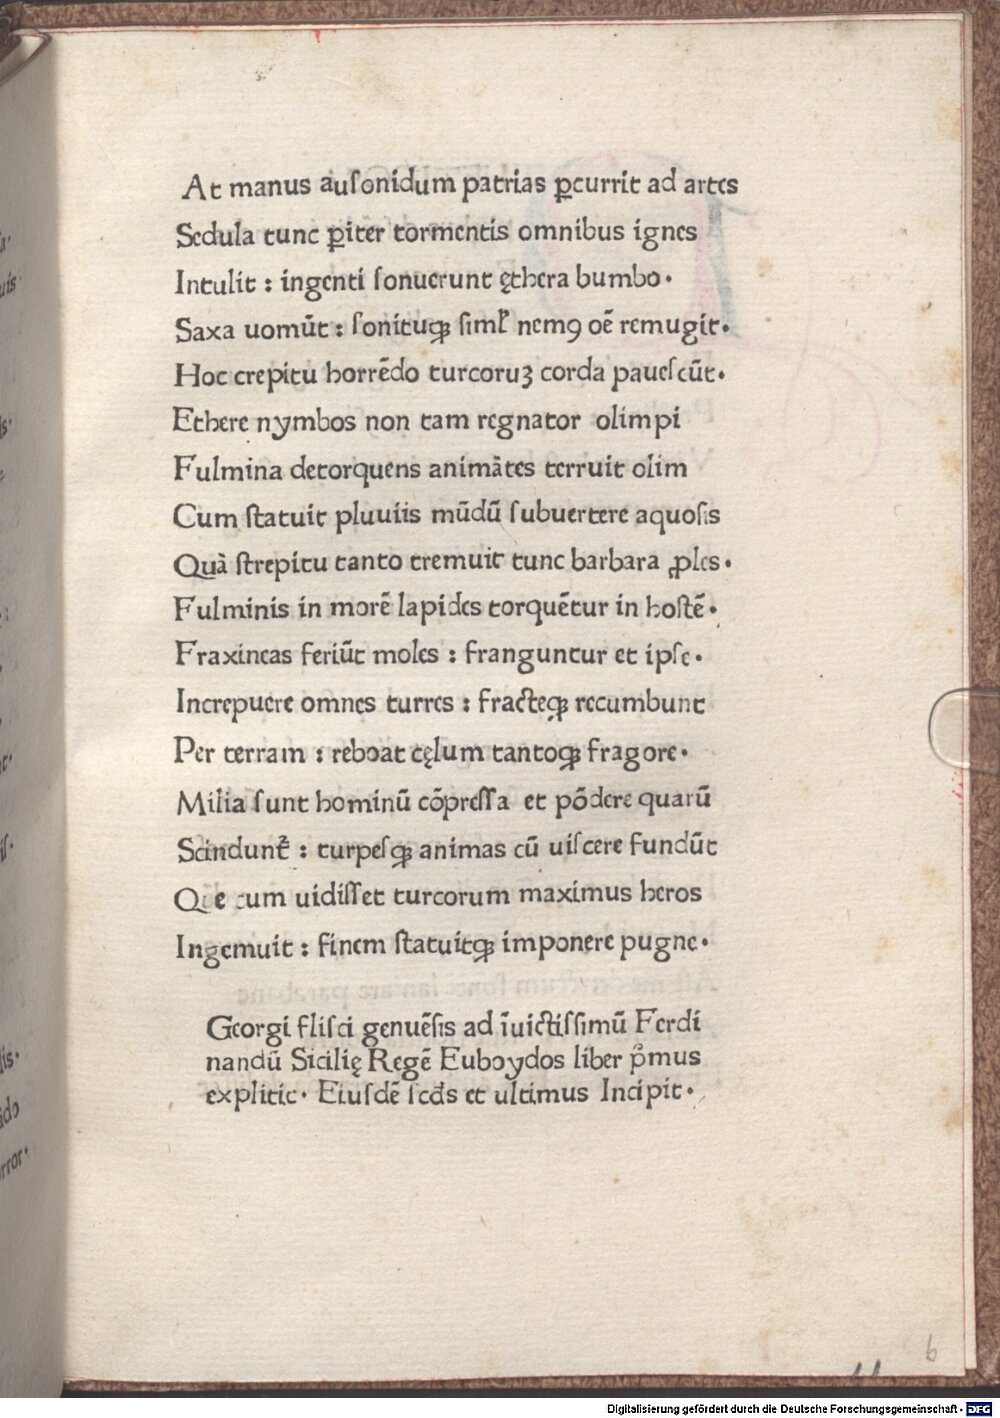 At manus auſonidum patrias ꝑcurrit ad artes
Sedula tunc ꝑiter tormentis omnibus ignes
Intulit : ingenti ſonuerunt ęthera bumbo·
Saxa uomūt : ſonituqꝫ ſiml̉ nemꝯ oē remugit·
Hoc crepitu horrēdo turcoruꝫ corda paueſcūt·
Ethere nymbos non tam regnator olimpi
Fulmina detorquens animātes terruit olim
Cum ſtatuit pluuiis mūdū ſubuertere aquoſis
Quā ſtrepitu tanto tremuit tunc barbara ꝓles·
Fulminis in morē lapides torquētur in hoſtē·
Fraxineas feriūt moles : franguntur et ipſe·
Increpuere omnes turres : fracteqꝫ recumbunt
Per terram : reboat cęlum tantoqꝫ fragore·
Milia ſunt hominū cōpreſſa et pōdere quarū
Scindunt᷑ : turpeſqꝫ animas cū uiſcere fundūt
Que cum uidiſſet turcorum maximus heros
Ingemuit : finem ſtatuitqꝫ imponere pugne·
Georgi fliſci genuēſis ad īuictiſſimū Ferdi
nandū Sicilię Regē Euboydos liber p̄mus
explitic· Eiuſdē ſcd̄s et ultimus Incipit·
6
Digitalisierung gefördert durch die Deutsche Forschungsgemeinschaft · DFG